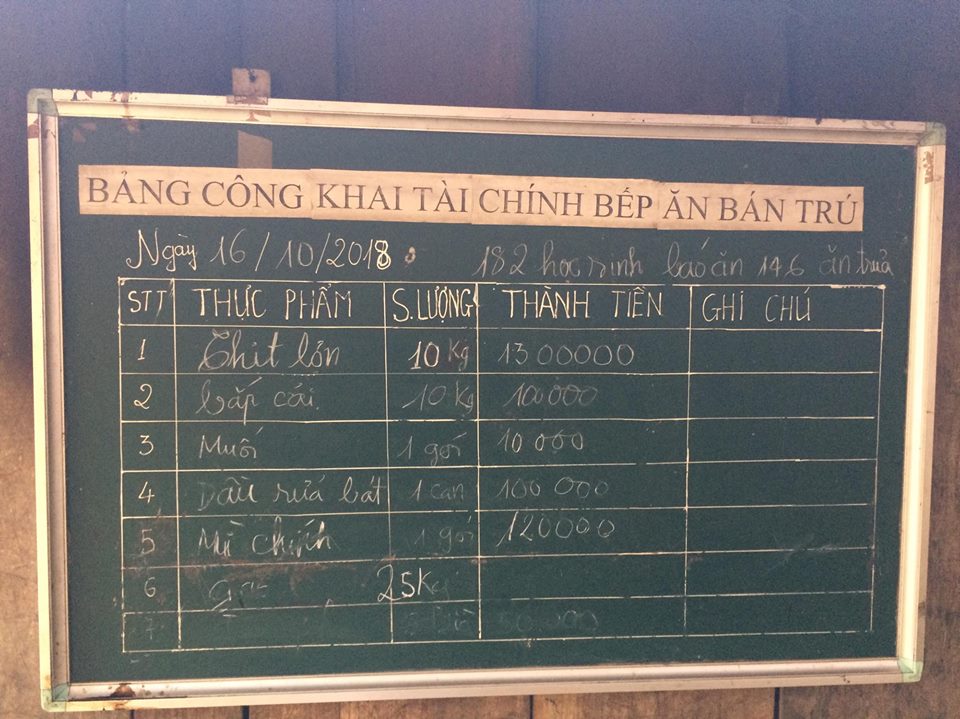 BẢNG CÔNG KHAI TÀI CHÍNH BẾP ĂN BÁN TRÚ
Ngày 16/10/2018 : 182 học sinh báo ăn 146 ăn trưa
STT THỰC PHẨM S. LƯỢNG THÀNH TIỀN GHI CHÚ
1 Thịt lợn 10 Kg 1300000
2 bắp cải. 10 Kg 100000
3 Muối 1 gói 10 000
4 Dầu rửa bát 1 can 100 000
5 Mì chính 1 gói 120000
6 25Kg
7